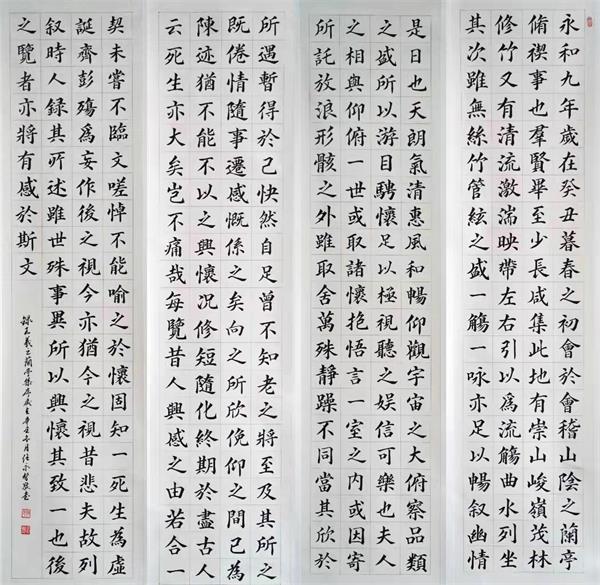 永和九年歲在癸丑暮春之初會於會稽山陰之蘭亭
脩禊事也羣賢畢至少長咸集此地有崇山峻嶺茂林
修竹又有清流激湍映帶左右引以爲流觴曲水列坐
其次雖無絲竹管絃之盛一觴一咏亦足以暢叙幽情
是日也天朗氣清惠風和暢仰觀宇宙之大俯察品類
之盛所以游目騁懷足以極視聽之娱信可樂也夫人
之相與仰俯一世或取諸懷抱悟言一室之内或因寄
所託放浪形骸之外雖取舍萬殊靜躁不同當其欣於
所遇暫得於己快然自足曾不知老之將至及其所之
既倦情隨事遷感慨係之矣向之所欣俛仰之間已爲
陳迹猶不能不以之興懷况修短隨化終期於盡古人
云死生亦大矣岂不痛哉每覽昔人興感之由若合一
契未嘗不臨文嗟悼不能喻之於懷固知一死生為虚
誕齊彭殤爲妄作後之視今亦猶今之視昔悲夫故列
叙時人録其所述雖世殊事異所以興懷其致一也後
之覽者亦將有感於斯文
録王羲之蘭亭集序歲在辛丑冬月任小